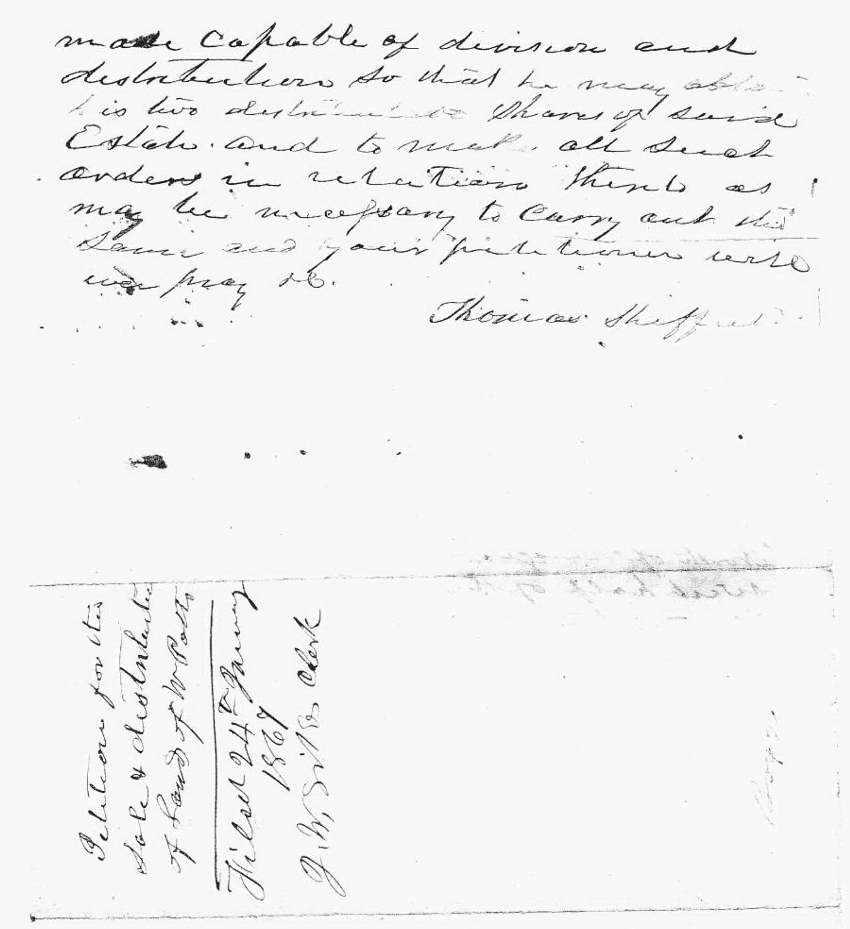 made capable of division and
distribution so that he may obtain
his two distributive Shares of said
Estate. and to make all such
orders in relation thereto as
may be necessary to carry out the
same and your petitioner will
ever pray &c.
Thomas Sheffield
Petition for the
Sale & distribution
of Lands of W Potts
Filed 24th January
1867
J. W. Clerk